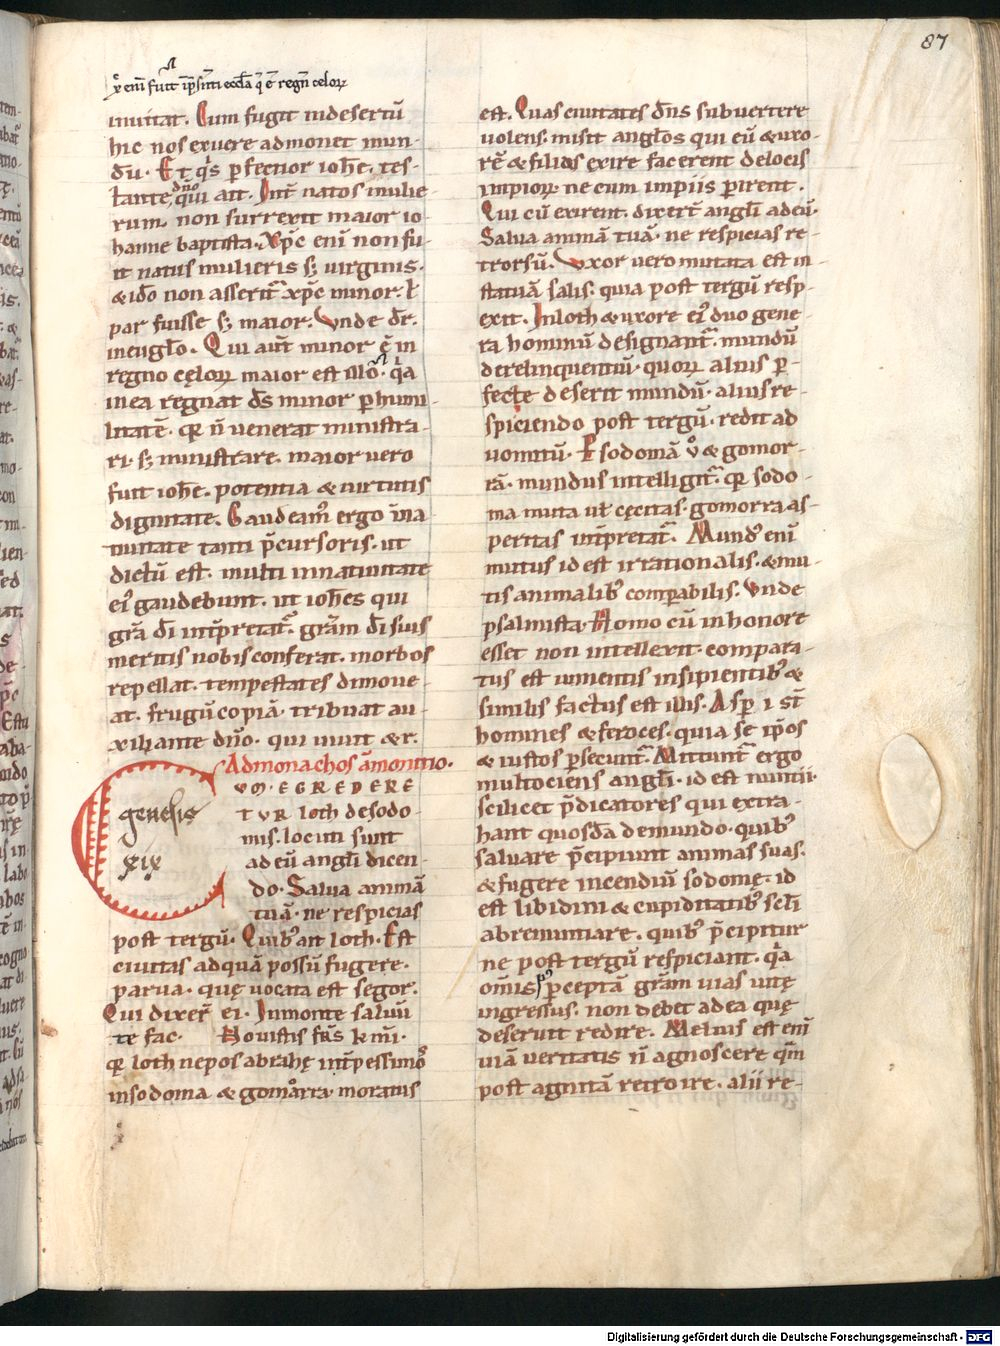 87
inuitat. Cum fugit in desertū
hic nos exuere admonet mun-
dū. Et qͥs ꝑfectior ioh̄e. tes-
tante dn̄o qui ait. Int̄ natos mulie-
rum. non surrexit maior io
hanne baptista. xp̄c eni non fu-
it natus mulieris sꝫ virginis.
& id̄o non asserit᷑ xp̄c minor. ł
par fuisse sꝫ maior. Vnde dr̄.
in eugl̄o. Qui aut̄ minor ē in
regno cęloꝝ maior est illo. qͥa
in ea regnat d̄s minor ꝑ humi-
litatē. qꝛ n̄ venerat ministra-
ri. sꝫ ministrare. maior vero
fuit ioh̄e. potentia & uirtutis
dignitate. Gaudeam᷒ ergo in na-
tiuitate tanti p̄cursoris. ut
dictū est. multi in natiuitate
ei᷒ gaudebunt. ut ioh̄es qui
gr̄a dī int̄p̄tat᷑. gr̄am dī suis
meritis nobis conferat. morbos
repellat. tempestates dimoue-
at. frugū copiā tribuat au-
xiliante dn̄o. qui uiuit & r̄.
Ad monachos āmonitio.
genesis
xix
CVM. EGREDERE
TVR loth de sodo-
mis. locuti sunt
ad eū angłi dicen-
do. Salua animā
tuā. ne respicias
post tergū. Quib᷒ ait loth. Est
ciuitas ad quā possū fugere.
parua. quę uocata est segor.
Qui dixer̄ ei. In monte saluū
te fac. Nouistis fr̄s k̄mi.
qꝛ loth nepos abrahę int̄ pessimos
in sodoma & gomorra moratus
est. Quas ciuitates dn̄s subuertere
uolens. misit angłos qui eū & uxo-
rē & filias exire facerent de locis
impioꝝ. ne cum impiis ꝑirent.
Qui cū exirent. dixer̄t angłi ad eū.
Salua animā tuā. ne respicias re-
trorsū. Vxor vero mutata est in
statuā salis. quia post tergū resp-
exit. In loth & uxore ei᷒ duo gene-
ra hominū designant᷑. mundū
derelinquentiū. quoꝝ alius ꝑ-
fecte deserit mundū. alius re-
spiciendo post tergū. redit ad
uomitū. P sodomā v̊ & gomor-
rā. mundus intelligit᷑. qꝛ sodo-
ma muta uł cęcitas. gomorra as-
peritas int̄pretat᷑. Mund᷒ enī
mutus id est irrationalis. & mu-
tis animalib᷒ comꝑabilis. Vnde
psalmista. Homo cū in honore
esset non intellexit. compara-
tus est iumentis insipientib᷒ &
similis factus est illis. Asꝑi st̄
homines & feroces. quia se ip̄os
& iustos ꝑsecunt᷑. Mittunt᷑ ergo
multociens angłi. id est nuntii.
scilicet p̄dicatores qui extra-
hant quosdā de mundo. quib᷒
saluare p̄cipiunt animas suas.
& fugere incendiū sodomę. id
est libidini & cupiditatib᷒ scłi
abrenuntiare. quib᷒ p̄cipitur
ne post tergū respiciant. qͥa
om̄is post ꝑceptā gr̄am uias uitę
ingressus. non debet ad ea quę
deseruit redire. Melius est enī
uiā veritatis n̄ agnoscere qm̄
post agnitā retro ire. alii re-
Digitalisierung gefördert durch die Deutsche Forschungsgemeinschaft - DFG